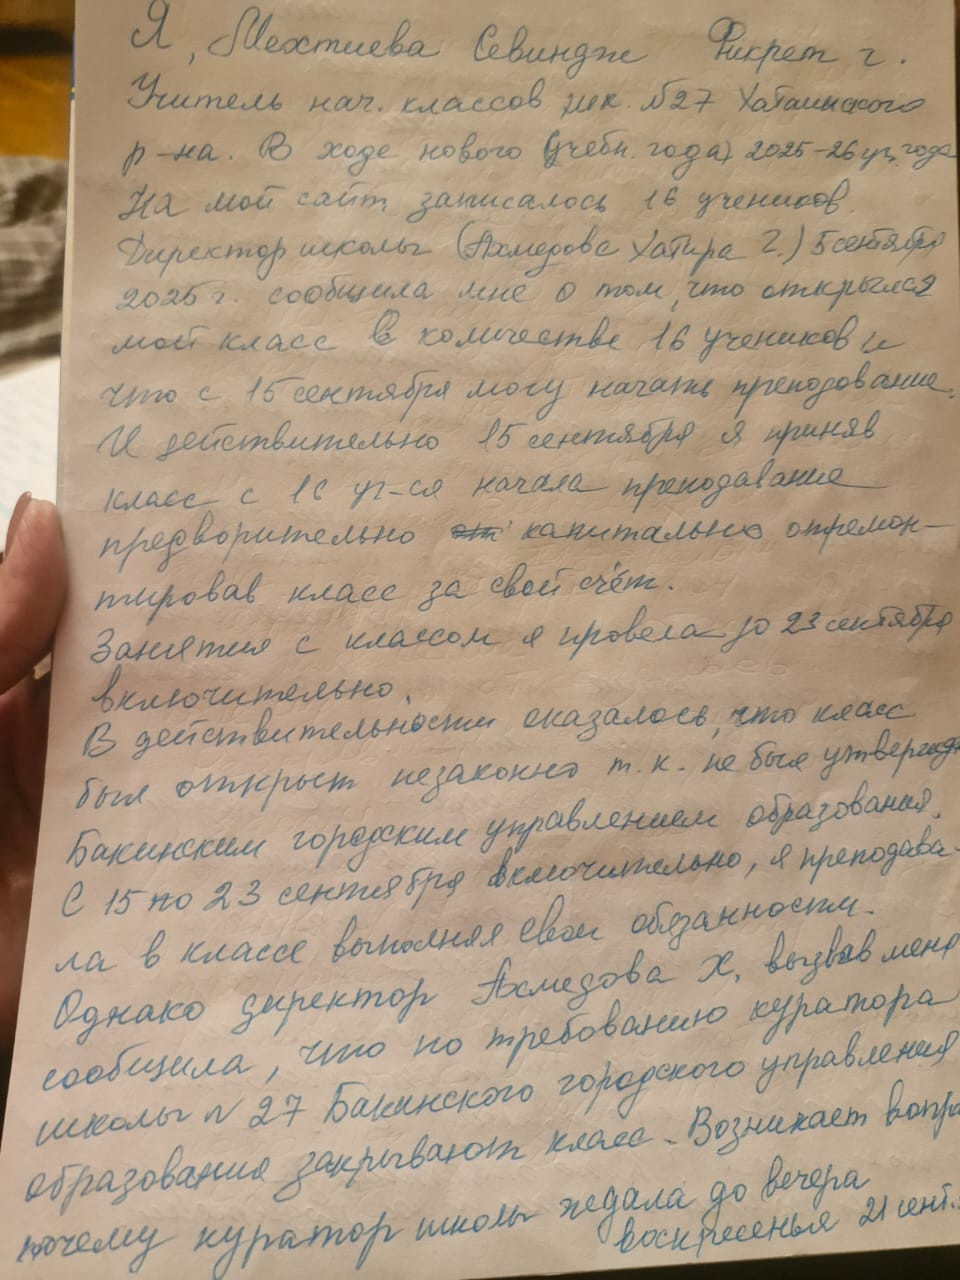 Я, Мехтиева Севиндж Фикрет г.
Учитель нач. классов шк. №27 Хатаинского
р-на. В ходе нового (учебн. года) 2025-26 уч. года
На мой сайт записалось 16 учеников.
Директор школы (Ахмедова Хатира Г.) 5 сентября
2025 г. сообщила мне о том, что открылся
мой класс в количестве 16 учеников и
что с 15 сентября могу начать преподование.
И действительно 15 сентября я приняв
класс с 16 уч-ся начала преподавание
предворительно капитально отремон-
тировав класс за свой счёт.
Занятия с классом я провела до 23 сентября
включительно.
В действительности оказалось, что класс
был открыт незаконно т.к. не был утвержд
Бакинским городским управлением образования.
С 15 по 23 сентября включительно, я преподава-
ла в классе выполняя свои обязанности.
Однако директор Ахмедова Х. вызвав меня
сообщила, что по требованию куратора
школы №27 Бакинского городского управления
образования закрывают класс. Возникает вопро
почему куратор школы ждала до вечера
воскресенья 21 сент.